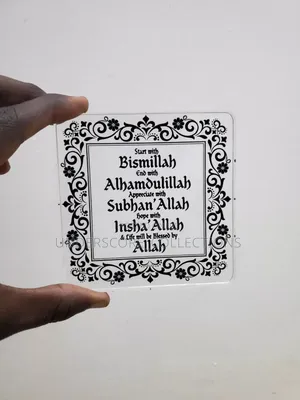 Start with
Bismillah
End with
Alhamdulillah
Appreciate with
Subhan'Allah
Hope with
Insha'Allah
& Life will be Blessed by
Allah
UNDERSCORE COLLECTIONS